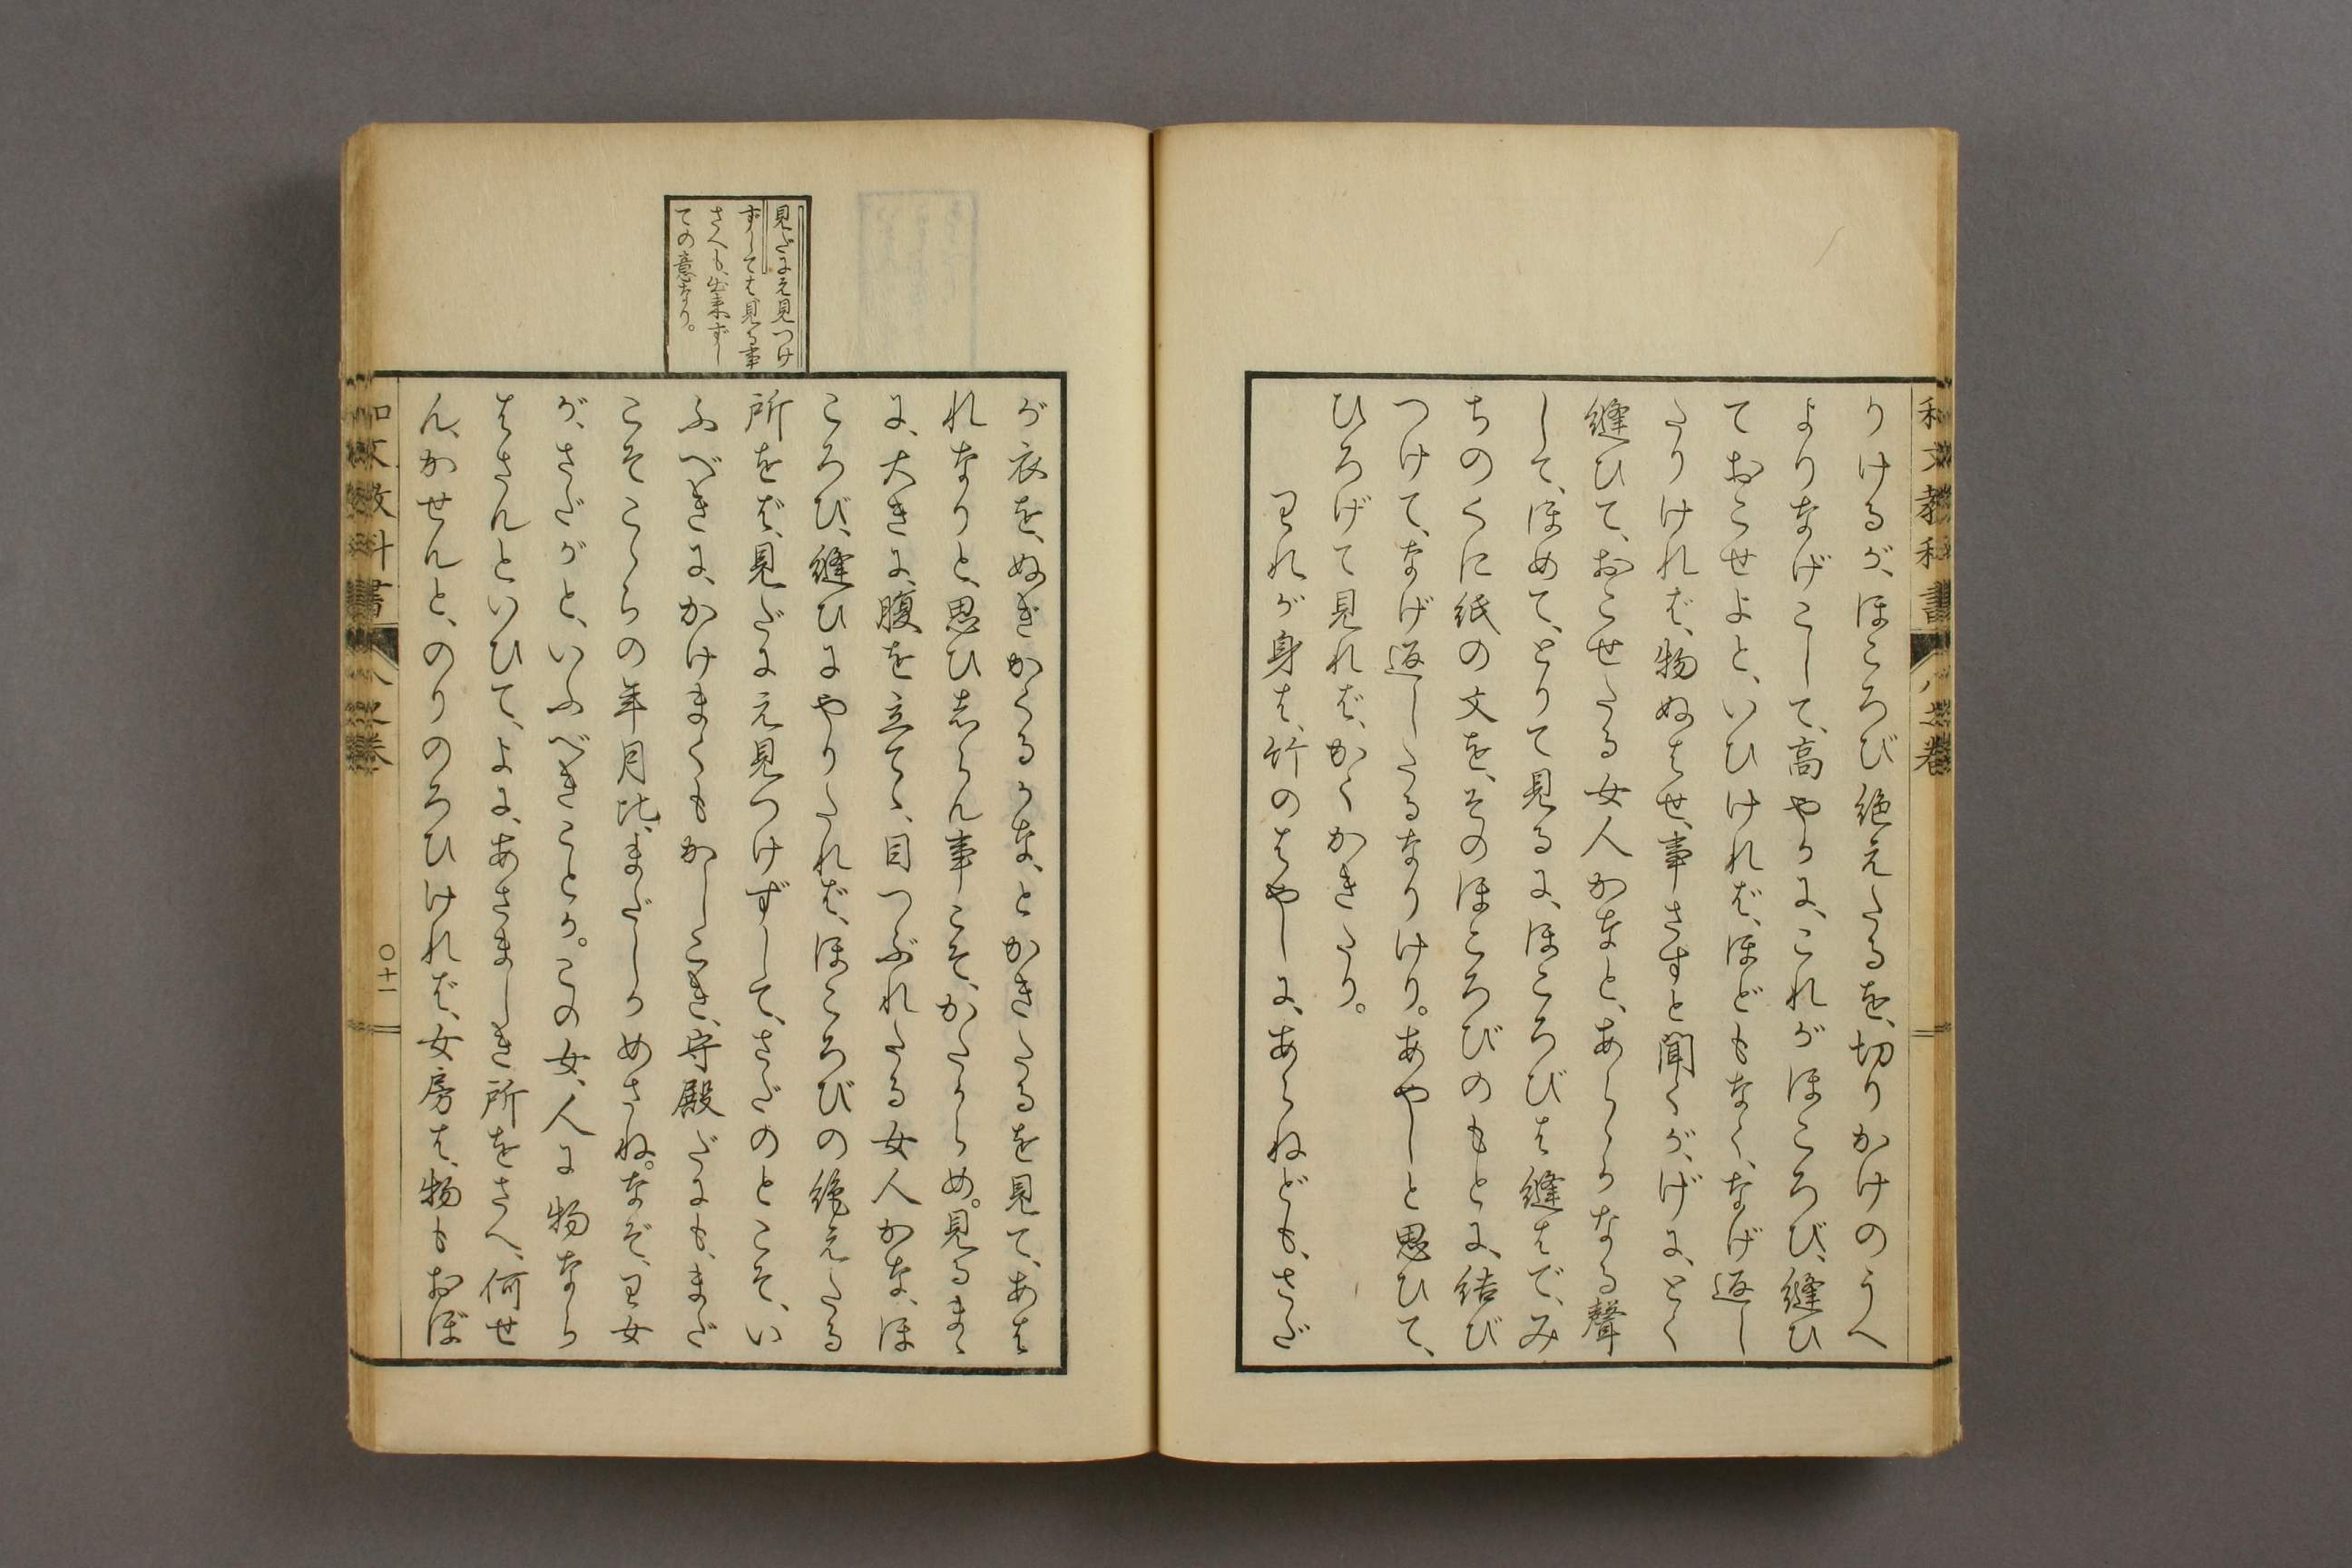 和文教科書 八之卷
りけるが、ほころび絶えたるを、切りかけのうへ
よりなげこして、高やかに、これがほころび、縫ひ
ておこせよと、いひければ、ほどもなく、なげ返し
たりければ、物ぬはせ、事さすと聞くが、げに、とく
縫ひて、おこせたる女人かなと、あらゝかなる聲
して、ほめて、とりて見るに、ほころびは縫はで、み
ちのくに紙の文を、そのほころびのもとに、結び
つけて、なげ返したるなりけり。あやしと思ひて、
ひろげて見れば、かくかきたり。
われが身は、竹のはやしに、あらねども、さだ
が衣を、ぬぎかくるかな、とかきたるを見て、あは
れなりと、思ひしらん事こそ、かたからめ。見るまゝ
に、大きに、腹を立てゝ、目つぶれたる女人かな、ほ
ころび、縫ひにやりたれば、ほころびの絶えたる
所をば、見だにえ見つけずして、さだのとこそ、い
ふべきに、かけまくもかしこき、守殿だにも、まだ
こそこゝらの年月比、まだしかめさね。なぞ、わ女
が、さだがと、いふべきことか。この女、人に物なら
はさんといひて、よに、あさましき所をさへ、何せ
ん、かせんと、のりのろひければ、女房は、物もおぼ
見だにえ見つけ
ずしては、見る事
さへも、出來ずし
ての意なり。
和文教科書 八之卷 〇十一